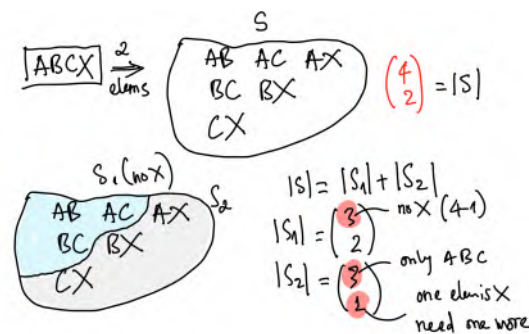 S
ABCX
2
elems
AB AC AX
BC BX
CX
(4 2) = |S|
S₁ (no X)
S₂
AB AC AX
BC BX
CX
|S| = |S₁| + |S₂|
|S₁| = (3 2)
no X (4-1)
|S₂| = (3 1)
only ABC
one elem is X
need one more